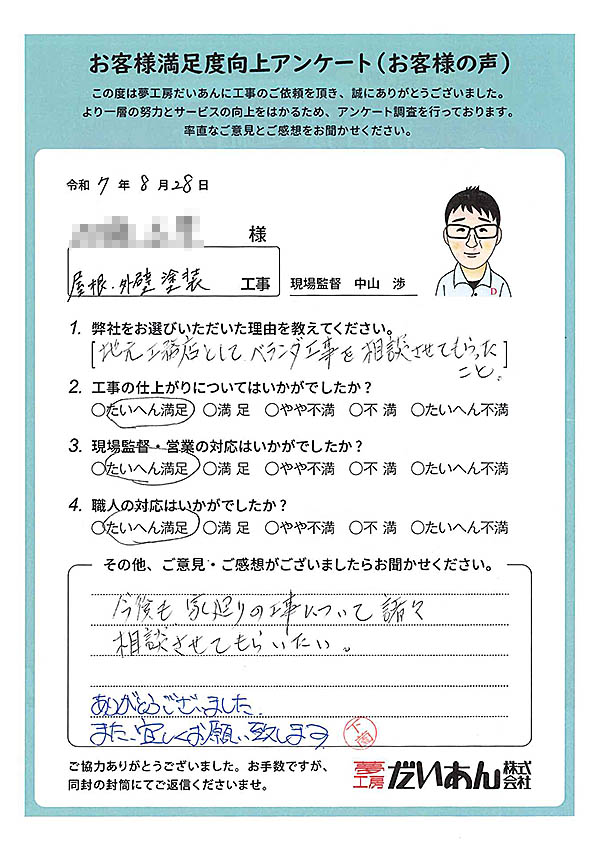 お客様満足度向上アンケート（お客様の声）
この度は夢工房だいあんに工事のご依頼を頂き、誠にありがとうございました。
より一層の努力とサービスの向上をはかるため、アンケート調査を行っております。
率直なご意見とご感想をお聞かせください。
令和 7 年 8 月 28 日
様
屋根・外壁塗装 工事
現場監督 中山 渉
D
1. 弊社をお選びいただいた理由を教えてください。
[地元工務店としてベランダ工事を相談させてもらった]
こと。
2. 工事の仕上がりについてはいかがでしたか？
○たいへん満足 ○満 足 ○やや不満 ○不 満 ○たいへん不満
3. 現場監督・営業の対応はいかがでしたか？
○たいへん満足 ○満 足 ○やや不満 ○不 満 ○たいへん不満
4. 職人の対応はいかがでしたか？
○たいへん満足 ○満 足 ○やや不満 ○不 満 ○たいへん不満
その他、ご意見・ご感想がございましたらお聞かせください。
今後も家廻りの工事について諸々
相談させてもらいたい。
ありがとうございました
また、宜しくお願い致します
ご協力ありがとうございました。お手数ですが、
同封の封筒にてご返信くださいませ。
夢工房 だいあん 株式会社